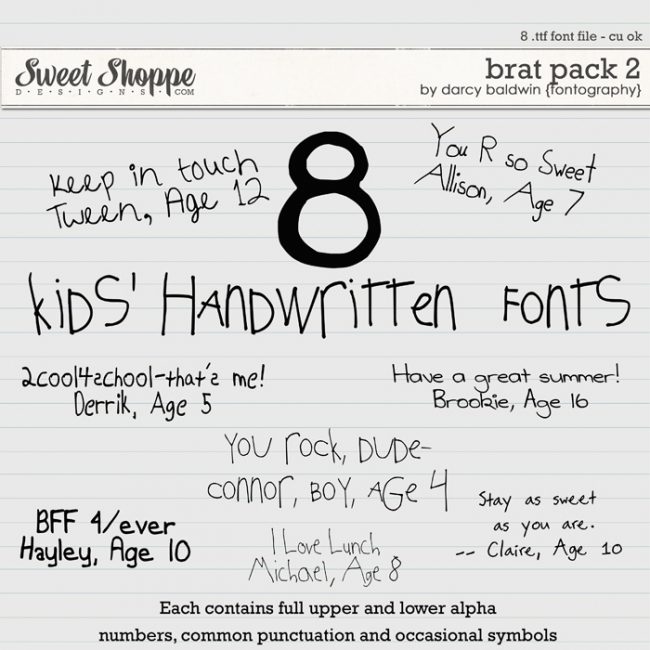 8 .ttf font file - cu ok
Sweet Shoppe
D·E·S·I·G·N·S·.COM
brat pack 2
by darcy baldwin {fontography}
keep in touch
Tween, Age 12
8
You R so Sweet
Allison, Age 7
kiDS' HANDWRiTTEN FONTS
2cool4school-that's me!
Derrik, Age 5
Have a great summer!
Brookie, Age 16
YOU rock, DUDE-
connor, BOY, AGe 4
BFF 4/ever
Hayley, Age 10
I Love Lunch
Michael, Age 8
Stay as sweet
as you are.
-- Claire, Age 10
Each contains full upper and lower alpha
numbers, common punctuation and occasional symbols